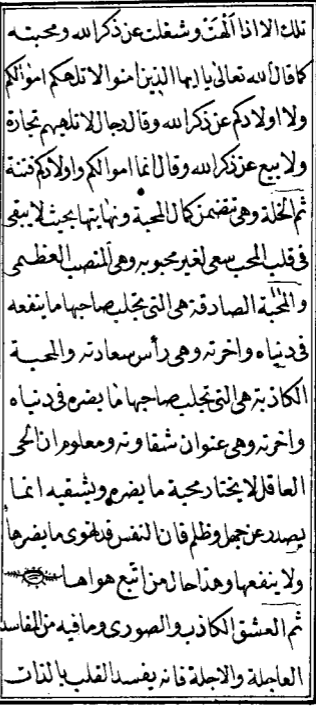 تلك الا اذا الهت وشغلت عن ذكر الله ومحبته
كما قال الله تعالى يا ايها الذين امنوا لا تلهكم اموالكم
ولا اولادكم عن ذكر الله وقال رجال لا تلهيهم تجارة
ولا بيع عن ذكر الله وقال انما اموالكم واولادكم فتنة
ثم الخلة وهى تتضمن كمال المحبة ونهايتها بحيث لا يبقى
فى قلب المحب سعى لغير محبوبه وهى المنصب العظمى
والمحبة الصادقة هى التى تجلب صاحبها ما ينفعه
فى دنياه واخرته وهى رأس سعادته والمحبة
الكاذبة هى التى تجلب صاحبها ما يضره فى دنياه
واخرته وهى عنوان شقاوته ومعلوم ان الحى
العاقل لا يختار محبة ما يضره ويشقيه انما
يصدر عن جهل وظلم فان النفس قد تهوى ما يضرها
ولا ينفعها وهذا حال من اتبع هواها
ثم العشق الكاذب والصورى وما فيه من المفاسد
العاجلة والاجلة فانه يفسد القلب بالذات